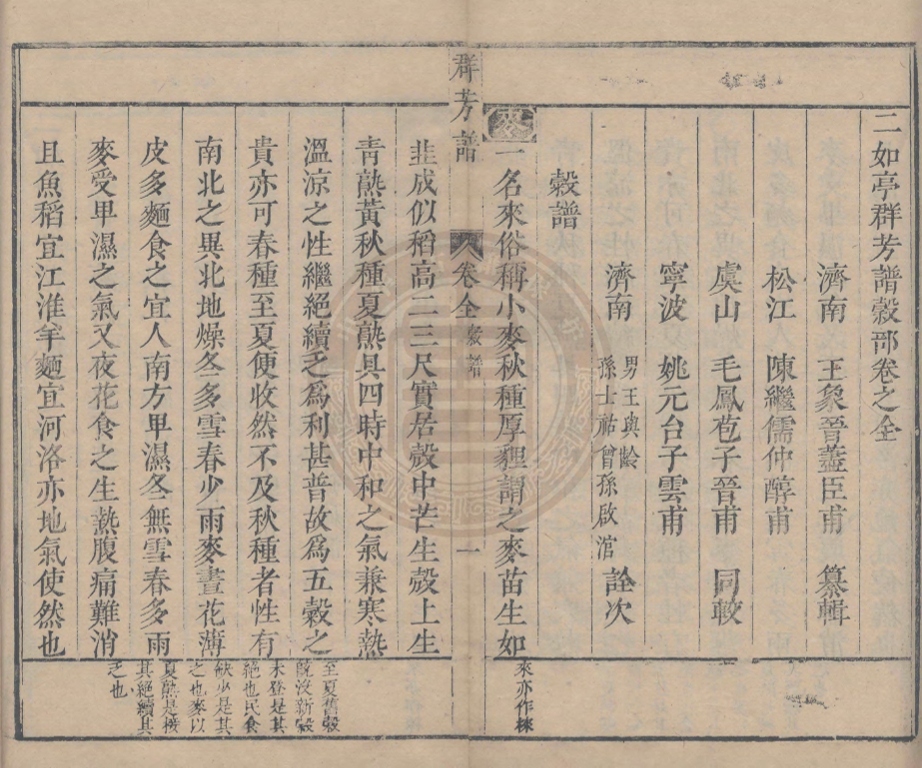 二如亭群芳譜穀部卷之全
濟南 王象晉藎臣甫 纂輯
松江 陳繼儒仲醇甫
虞山 毛鳳苞子晉甫 同較
寧波 姚元台子雲甫
濟南 男王與齡
孫士祜曾孫啟涫 詮次
穀譜
麥 一名來俗稱小麥秋種厚貍謂之麥苗生如
來亦作秾
群芳譜 卷全 穀譜 一
韭成似稻高二三尺實居殼中芒生殼上生
青熟黃秋種夏熟具四時中和之氣兼寒熱
溫涼之性繼絕續乏為利甚普故為五穀之
貴亦可春種至夏便收然不及秋種者性有
南北之異北地燥冬多雪春少雨麥晝花薄
皮多麵食之宜人南方卑濕冬無雪春多雨
麥受卑濕之氣又夜花食之生熱腹痛難消
且魚稻宜江淮羊麵宜河洛亦地氣使然也
至夏舊穀
既沒新穀
未登是其
絕也民食
缺少是其
乏也麥以
夏熟是接
其絕續其
乏也